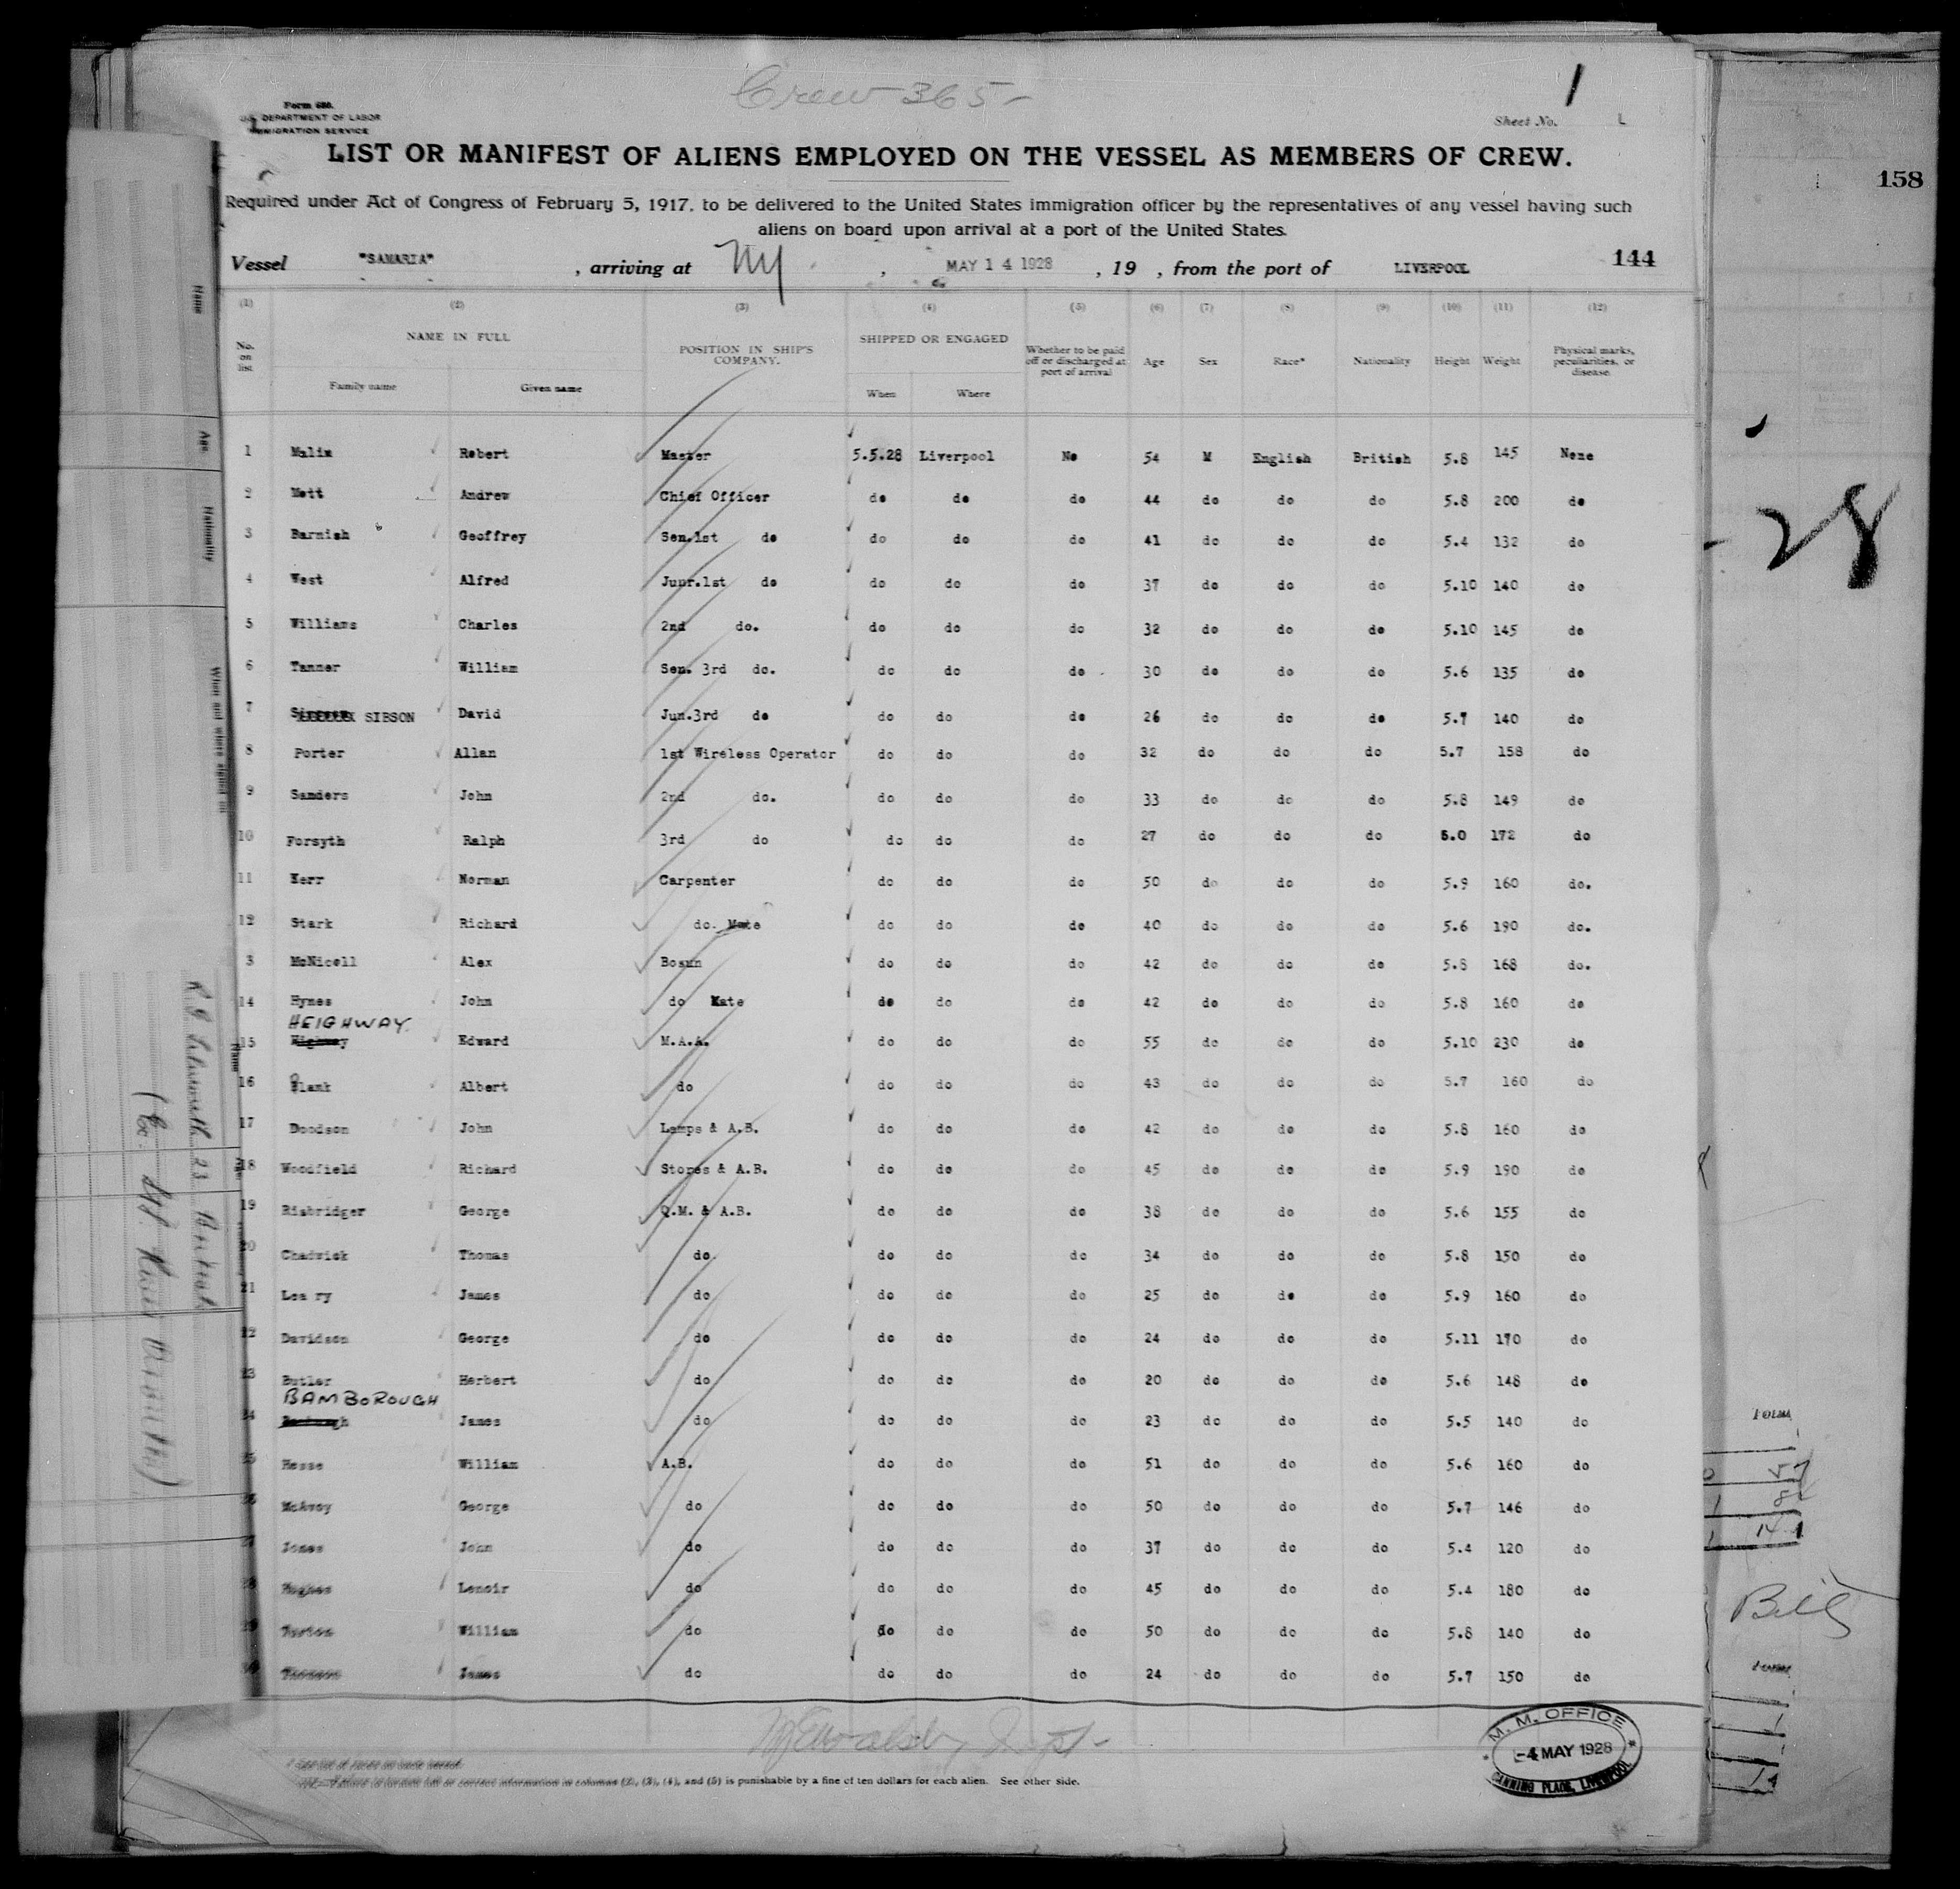 Crew 365-
Form 680.
U.S. DEPARTMENT OF LABOR
IMMIGRATION SERVICE
1
Sheet No. 1
LIST OR MANIFEST OF ALIENS EMPLOYED ON THE VESSEL AS MEMBERS OF CREW.
158
Required under Act of Congress of February 5, 1917, to be delivered to the United States immigration officer by the representatives of any vessel having such
aliens on board upon arrival at a port of the United States.
Vessel "SAMARIA", arriving at NY, MAY 14 1928, 19 , from the port of LIVERPOOL 144
(1) (2) (3) (4) (5) (6) (7) (8) (9) (10) (11) (12)
No. on list NAME IN FULL POSITION IN SHIP'S COMPANY. SHIPPED OR ENGAGED Whether to be paid off or discharged at port of arrival Age Sex Race* Nationality Height Weight Physical marks, peculiarities, or disease
Family name Given name When Where
1 Malim Robert Master 5.5.28 Liverpool No 54 M English British 5.8 145 None
2 Mott Andrew Chief Officer do do do 44 do do do 5.8 200 do
3 Barnish Geoffrey Sen.1st do do do do 41 do do do 5.4 132 do
4 West Alfred Junr.1st do do do do 37 do do do 5.10 140 do
5 Williams Charles 2nd do. do do do 32 do do do 5.10 145 do
6 Tanner William Sen. 3rd do. do do do 30 do do do 5.6 135 do
7 SIBSON David Jun.3rd do do do do 26 do do do 5.7 140 do
8 Porter Allan 1st Wireless Operator do do do 32 do do do 5.7 158 do
9 Sanders John 2nd do. do do do 33 do do do 5.8 149 do
10 Forsyth Ralph 3rd do do do do 27 do do do 6.0 172 do
11 Kerr Norman Carpenter do do do 50 do do do 5.9 160 do.
12 Stark Richard do. Mate do do do 40 do do do 5.6 190 do.
3 McNicoll Alex Bosun do do do 42 do do do 5.8 168 do.
14 Hynes John do Mate do do do 42 do do do 5.8 160 do
HEIGHWAY
15 Highway Edward M.A.A. do do do 55 do do do 5.10 230 do
16 Plank Albert do do do do 43 do do do 5.7 160 do
17 Doodson John Lamps & A.B. do do do 42 do do do 5.8 160 do
18 Woodfield Richard Stores & A.B. do do do 45 do do do 5.9 190 do
19 Risbridger George Q.M. & A.B. do do do 38 do do do 5.6 155 do
20 Chadwick Thomas do do do do 34 do do do 5.8 150 do
21 Lea ry James do do do do 25 do do do 5.9 160 do
22 Davidson George do do do do 24 do do do 5.11 170 do
23 Butler Herbert do do do do 20 do do do 5.6 148 do
BAMBOROUGH
24 James do do do do 23 do do do 5.5 140 do
25 Hesse William A.B. do do do 51 do do do 5.6 160 do
26 McAvoy George do do do do 50 do do do 5.7 146 do
27 Jones John do do do do 37 do do do 5.4 120 do
28 Hughes Lenoir do do do do 45 do do do 5.4 180 do
29 William do do do do 50 do do do 5.8 140 do
30 Thomson James do do do do 24 do do do 5.7 150 do
* See list of races on back hereof.
NOTE.—Failure to furnish full or correct information in columns (2), (3), (4), and (5) is punishable by a fine of ten dollars for each alien. See other side.
M. M. OFFICE
-4 MAY 1928
CANNING PLACE, LIVERPOOL
Name
Age
Nationality
When and where signed on
- 28